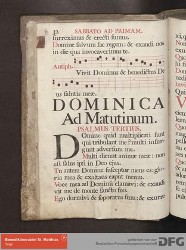 32. SABBATO AD PRIMAM.
surreximus & erecti sumus.
Domine salvum fac regem: & exaudi nos
in die qua invocaverimus te.
Antiph.
Vivit Dominus & benedictus De
us salutis meæ.
DOMINICA
Ad Matutinum.
PSALMUS TERTIUS.
Domine quid multiplicati sunt
qui tribulant me? multi insur-
gunt adversum me.
Multi dicunt animæ meæ: non
est salus ipsi in Deo ejus.
Tu autem Domine susceptor meus es: glo-
ria mea & exaltans caput meum.
Voce mea ad Dominum clamavi: & exaudi-
vit me de monte sancto suo.
Ego dormivi & soporatus sum: & exurre-
Benediktinerabtei St. Matthias
gefördert von der
Deutschen Forschungsgemeinschaft
DFG